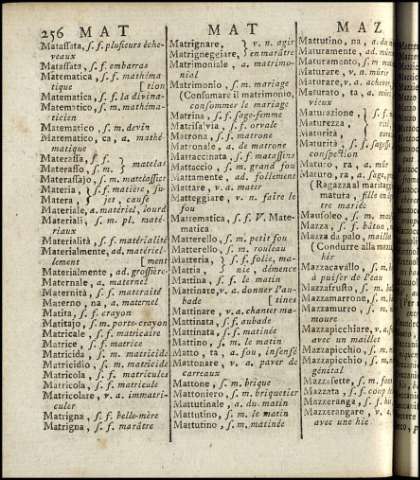 256 MAT
Matassata, s. f. plusieurs éche-
veaux
Matassata, s. f. embarras
Matematica, s. f. mathéma
tique [tion
Matematica, s. f. la divina-
Matematico, s. m. mathéma-
ticien
Matematico, s. m. devin
Matematico, ca, a. mathé-
matique
Materassa, s. f.
Materasso, s. m. } matelas
Materassajo, s. m. matelassier
Materia, } s. f. matière, su-
Matera, } jet, cause
Materiale, a. matériel, lourd
Materiali, s. m. pl. maté-
riaux
Materialità, s. f. matérialité
Materialmente, ad. matériel-
lement [ment
Materialmente, ad. grossière-
Maternale, a. maternel
Maternità, s. f. maternité
Materno, na, a. maternel
Matita, s. f. crayon
Matitajo, s. m. porte-crayon
Matricale, s. f. matricaire
Matrice, s. f. matrice
Matricida, s. m. matricide
Matricidio, s. m. matricide
Matricola, s. f. matricules
Matricola, s. f. matricule
Matricolare, v. a. immatri-
culer
Matrigna, s. f. belle-mère
Matrigna, s. f. marâtre
MAT
Matrignare, } v. n. agir
Matrignegeiare, } en marâtre
Matrimoniale, a. matrimo-
nial
Matrimonio, s. m. mariage
(Consumare il matrimonio,
consommer le mariage
Matrina, s. f. sage-femme
Matrisalvia, s. f. orvale
Matrona, s. f. matrone
Matronale, a. de matrone
Mattaccinata, s. f. matassins
Mattoccio, s. m. grand fou
Mattamente, ad. follement
Mattare, v. a. mater
Matteggiare, v. n. faire le
fou
Mattematica, s. f. V. Mate-
matica
Matterello, s. m. petit fou
Matterello, s. m. rouleau
Matteria, } s. f. folie, ma-
Mattia, } nie, démence
Mattina, s. f. le matin
Mattinare, v. a. donner l'au-
bade [tines
Mattinare, v. a. chanter ma-
Mattinata, s. f. aubade
Mattinata, s. f. matinée
Mattino, s. m. le matin
Matto, ta, a. fou, insensé
Mattonare, v. a. paver de
carreaux
Mattone, s. m. brique
Mattoniero, s. m. briquetier
Mattutinale, a. du matin
Mattutino, s. m. le matin
Mattutino, s. m. matinée
MAZ
Mattutino, na, a. du
Maturamente, ad. mûre
Maturamento, s. m.
Maturare, v. n. mûrir
Maturare, v. a. achever
Maturato, ta, a. mûri,
vieux
Maturazione,
Maturezza,
Maturità,
Maturità, s. f.
Maturo, ra, a. mûr
Maturo, ra, a. sage,
(Ragazza al maritaggio
matura, fille
tre mariée
Mausoleo, s. m.
Mazza, s. f. bâton,
Mazza da palo, maillet
(Condurre alla mazza

Mazzacavallo, s. m.
à puiser de l'eau
Mazzafrusto, s. m.
Mazzamarrone, s. m.
Mazzamurro, s. m.
moure
Mazzapicchiare, v. a.
avec un maillet
Mazzapicchio, s. m.
Mazzapicchio, s. m.
génital
Mazzasette, s. m.
Mazzata, s. f. coup
Mazzerangare, v. a.
avec une hie